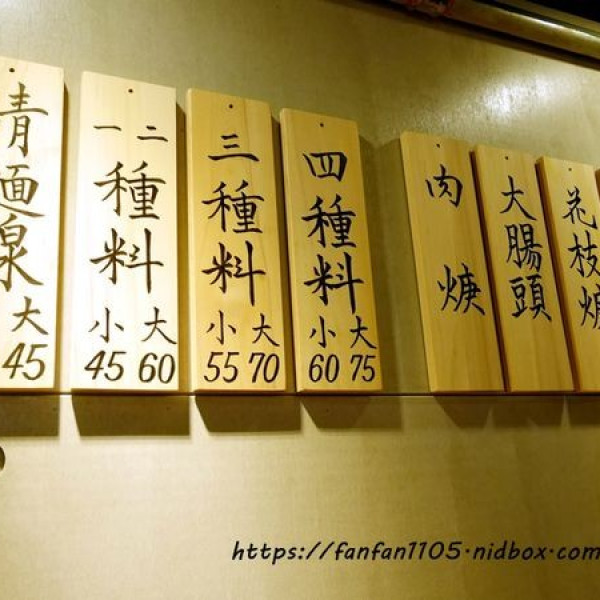 清麵線
大
45
一二
種料
小 大
45 60
三種料
小 大
55 70
四種料
小 大
60 75
肉焿
大腸頭
花枝焿
https://fanfan1105.nidbox.com